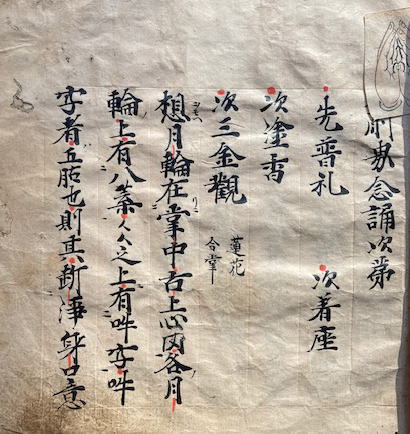 剛界念誦次第
先普礼　次着座
次塗香
次三金觀　蓮花合掌
想月輪在掌中舌上心内各月
輪上有八葉々々之上有吽字吽
字者五股也則其断淨身口意